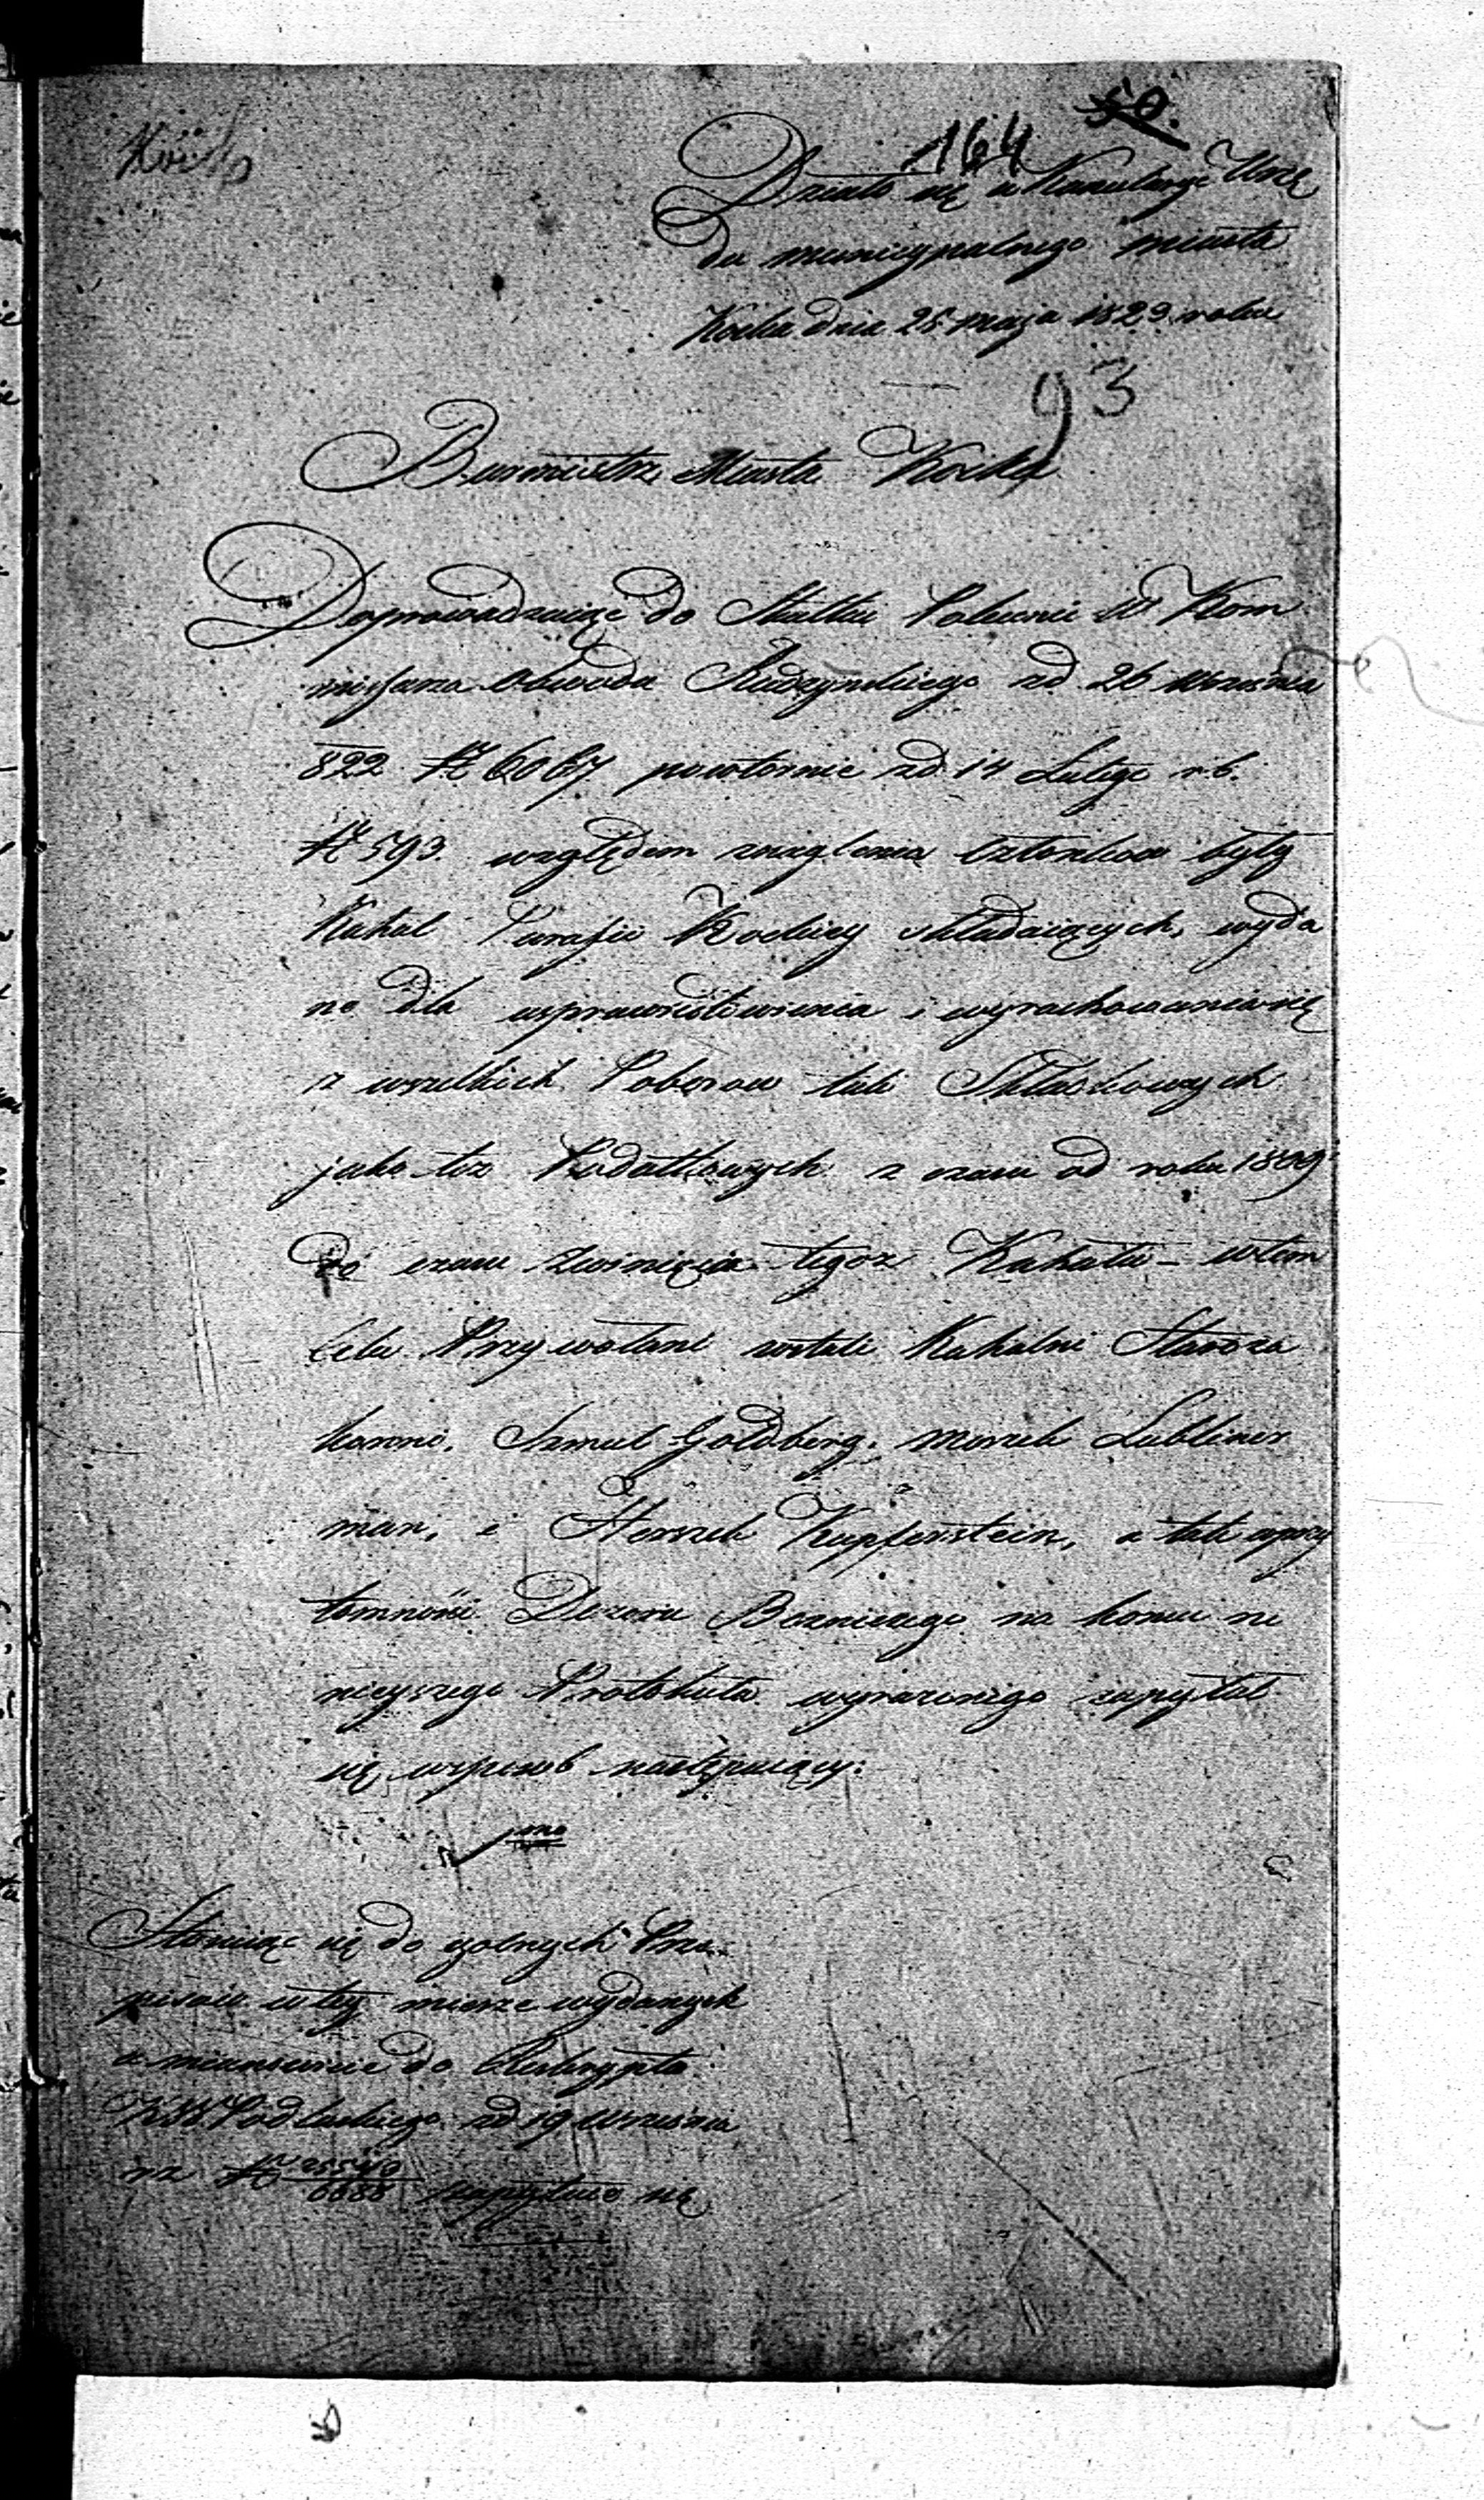 Kock
50.
164
Działo się w Kancelaryi Urzę
du municypalnego miasta
Kocka dnia 26 maja 1823 roku
93
Burmistrz Miasta Kocka
Doprowadzaiąc do Skutku Polecenie W Kom
missarza Obwodu Radzynskiego z d. 26 Września
822 N 6067 powtornie z d. 14 Lutego r. b.
N 593. względem zciąglenia Członkow były
Kahał Parafii Kockiey składaiących, wyda
ne dla usprawiedliwienia i wyrachowania się
z wszelkich Poborow tak Składkowych
jako też Podatkowych z czasu od roku 1809
do czasu zwinięcia tegoz Kahału – w tem
Celu Przywołani zostali Kahalni Staroza
konni, Szmul Goldberg, Moszek Lubliner
man, i Herszek Kupferstein, a tak w przy
tomności Dozoru Boznicznego na koncu ni
nieyszego Protokułu wyrażonego zapytał
się w sposob następuiący:
1mo
Stosuiąc się do ogolnych Prze
pisow w tey mierze wydanych
a mianowicie do Reskryptu
KW Podlaskiego z d. 19 Września
rz N 6688 zapytuie się